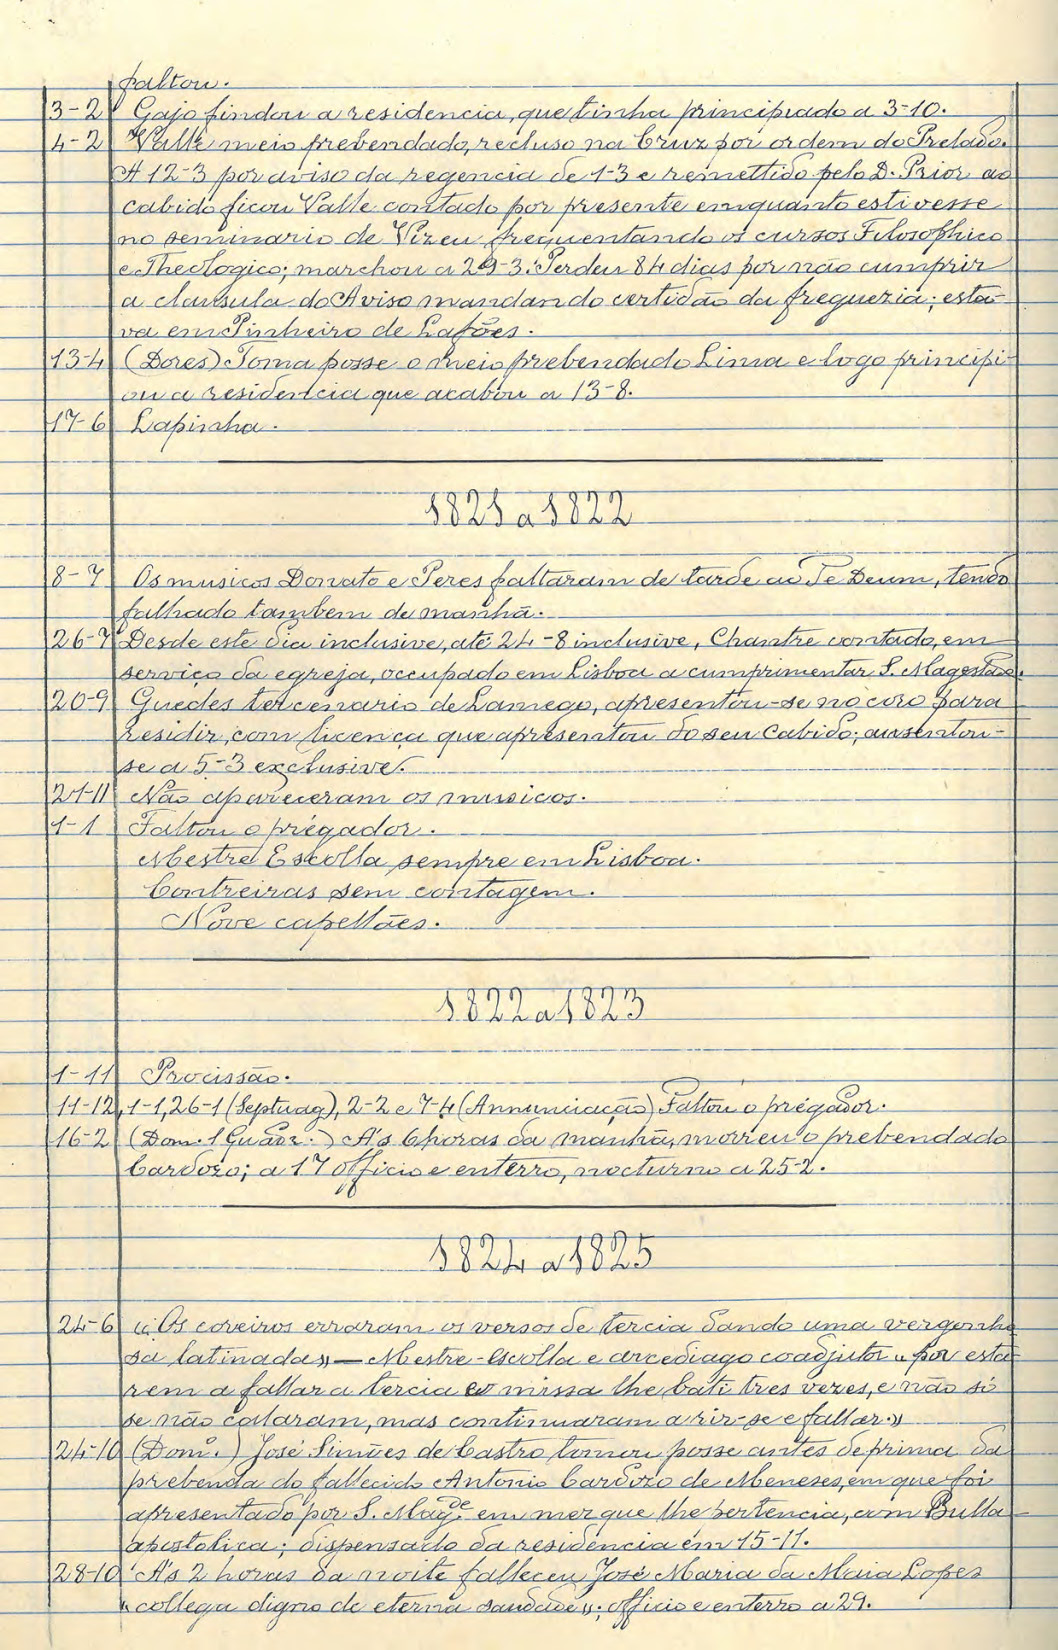 faltou.
3-2 Gajo findou a residencia, que tinha principiado a 3-10.
4-2 Valle meio prebendado, recluso na Cruz por ordem do Prelado.
A 12-3 por aviso da regencia de 1-3 e remettido pelo D. Prior ao
cabido ficou Valle contado por presente emquanto estivesse
no seminario de Vizeu frequentando os cursos Filosophico
e Theologico; marchou a 29-3. Perdeu 84 dias por não cumprir
a clausula do Aviso mandando certidão da freguezia; esta-
va em Pinheiro de Lafões.
13-4 (Dores) Toma posse o meio prebendado Lima e logo principi-
ou a residencia que acabou a 13-8.
17-6 Lapinha.
1821 a 1822
8-7 Os musicos Donato e Peres faltaram de tarde ao Te Deum, tendo
falhado tambem de manhã.
26-7 Desde este dia inclusive, até 24-8 inclusive, Chantre contado, em
serviço da egreja, occupado em Lisboa a cumprimentar S. Magestade.
20-9 Guedes tercenario de Lamego, apresentou-se no côro para
residir, com licença que apresentou do seu Cabido; ausentou-
se a 5-3 exclusive.
21-11 Não apareceram os musicos.
1-1 Faltou o prégador.
Mestre Escolla sempre em Lisboa.
Contreiras sem contagem.
Nove capellães.
1822 a 1823
1-11 Procissão.
11-12, 1-1, 26-1 (Septuag), 2-2 e 7-4 (Annunciação) Faltou o prégador.
16-2 (Dom. 1 Quadr.) A's 6 horas da manhã, morreu o prebendado
Cardozo; a 17 officio e enterro, nocturno a 25-2.
1824 a 1825
24-6 «Os coreiros erraram os versos de tercia dando uma vergonho
sa latinada» — Mestre-Escolla e arcediago coadjutor «por esta-
rem a fallar a tercia e missa lhe bati tres vezes, e não só
se não calaram, mas continuaram a rir-se e fallar.»
24-10 (Domº.) José Simões de Castro tomou posse antes de prima da
prebenda do fallecido Antonio Cardozo de Meneses, em que foi
apresentado por S. Magde. em mez que lhe pertencia, com Bulla
apostolica; dispensado da residencia em 15-11.
28-10 A's 2 horas da noite falleceu José Maria da Maia Lopes
«collega digno de eterna saudade»; officio e enterro a 29.